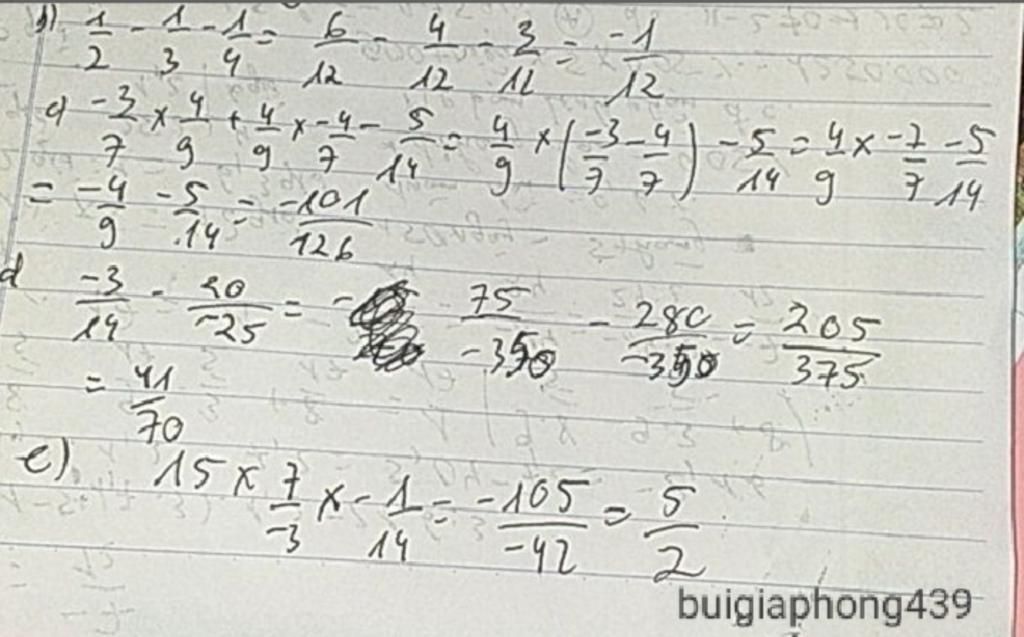 b) 1/2 - 1/3 - 1/4 = 6/12 - 4/12 - 3/12 = -1/12
c) -3/7 × 4/9 + 4/9 × -4/7 - 5/14 = 4/9 × (-3/7 - 4/7) - 5/14 = 4/9 × -7/7 - 5/14
= -4/9 - 5/14 = -101/126
d -3/14 - 20/-25 = 75/-350 - 280/-350 = 205/375
= 41/70
e) 15 × 7/-3 × -1/14 = -105/-42 = 5/2
buigiaphong439